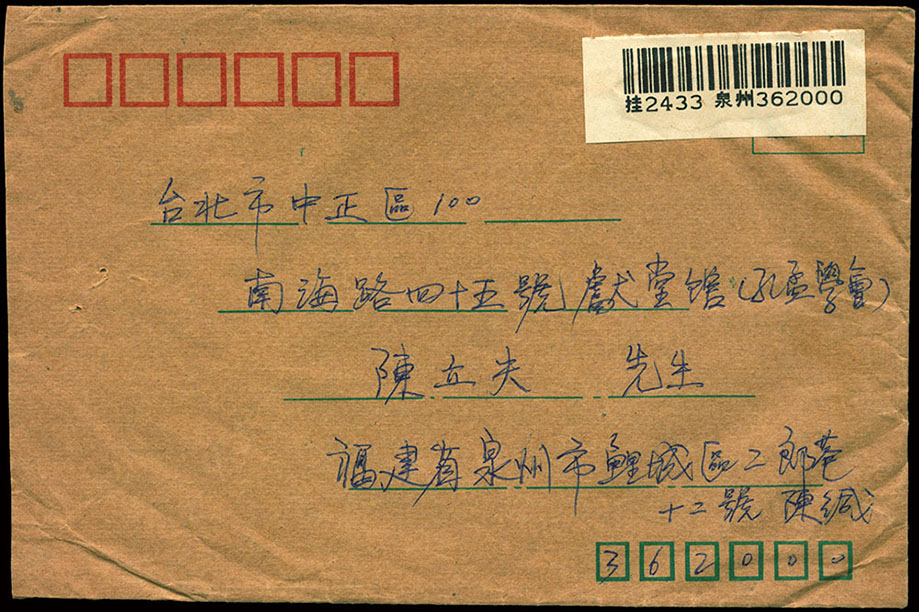 挂2433 泉州362000
台北市中正區100
南海路四十五號獻堂館(孔孟學會)
陳立夫 先生
福建省泉州市鯉城區二郎巷
十二號 陳緘
362000